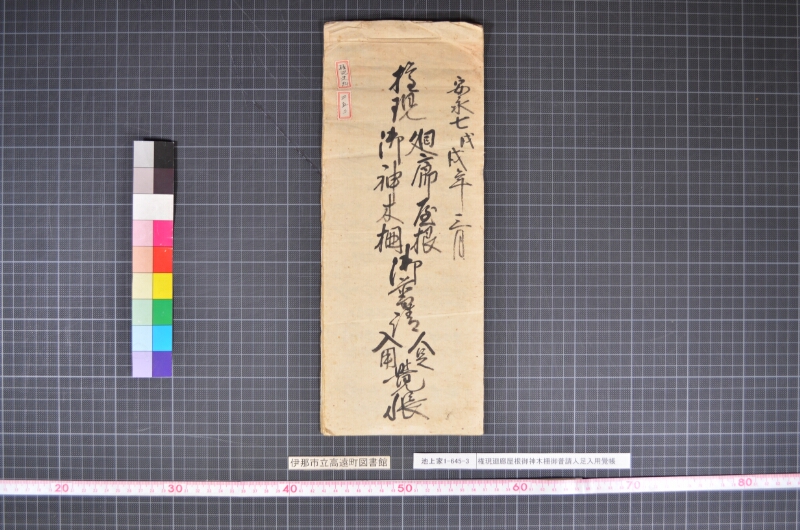 安永七戊戌年三月
権現
廻廊屋根
御神木柵
御普請
人足
入用
覚帳
伊那市立高遠町図書館
池上家3-645-3 権現廻廊屋根御神木柵御普請人足入用覚帳
20 30 40 50 60 70 80